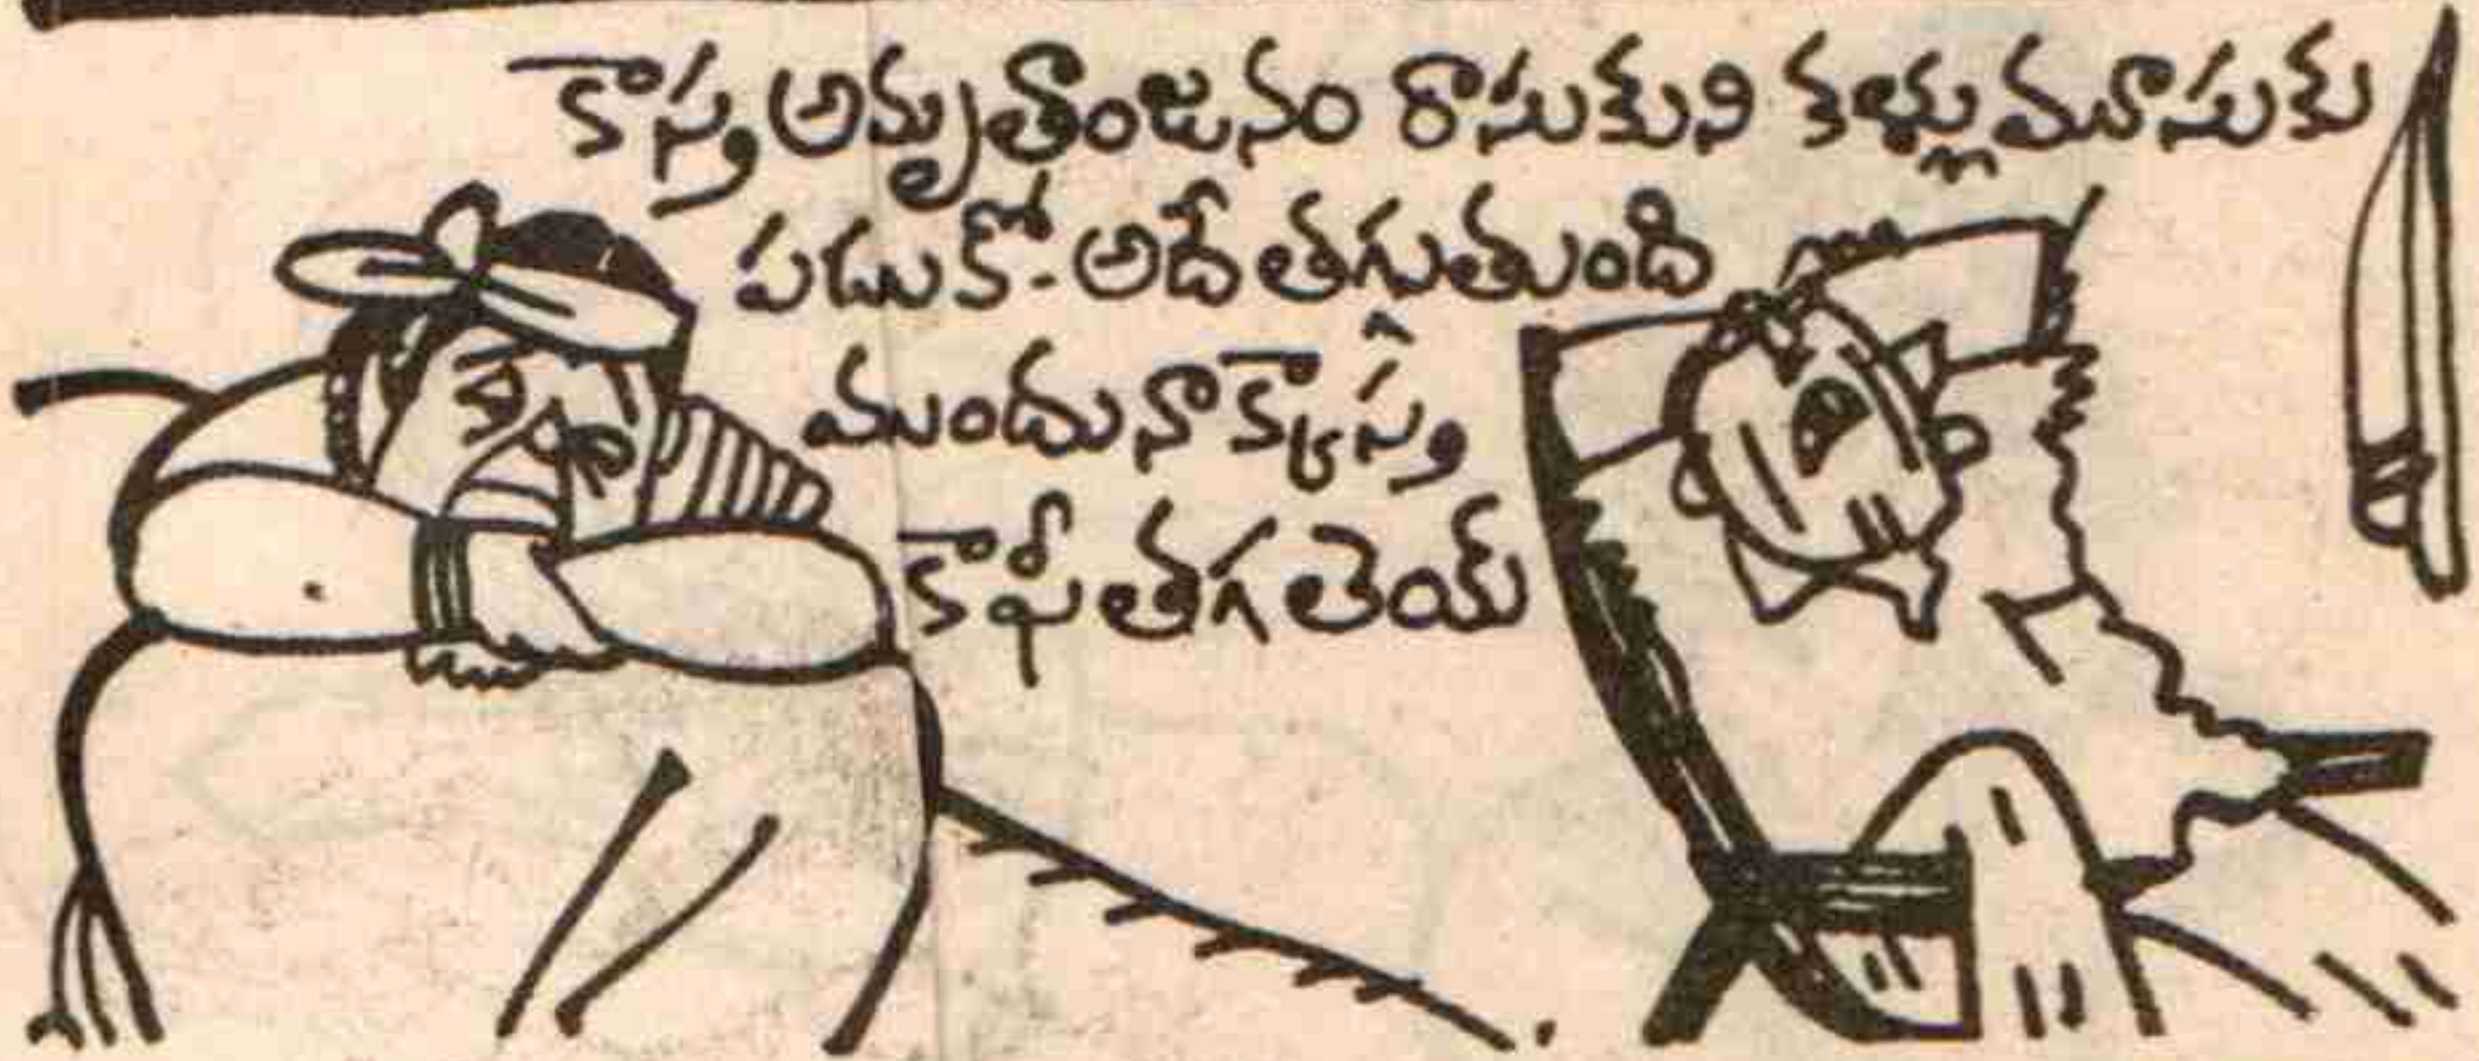 కాస్త అమృతాంజనం రాసుకుని కళ్లుమూసుకు
పడుకో - అదే తగ్గుతుంది
ముందు నాక్కాస్త
కాఫీ తగలెయ్